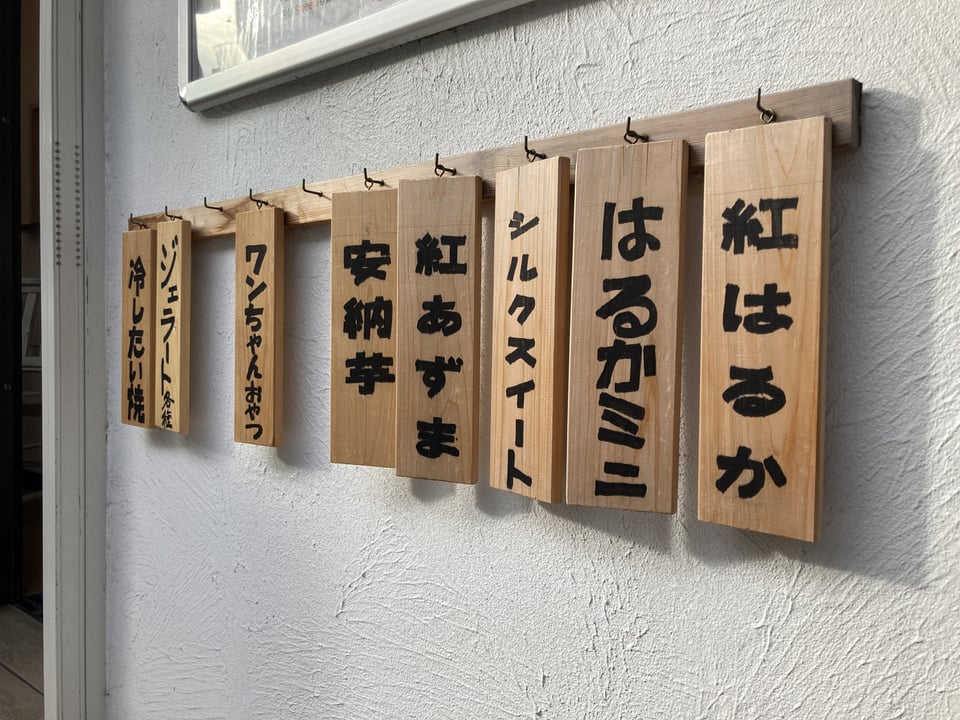 紅はるか
はるかミニ
シルクスイート
紅あずま
安納芋
ワンちゃんおやつ
ジェラート各種
冷したい焼